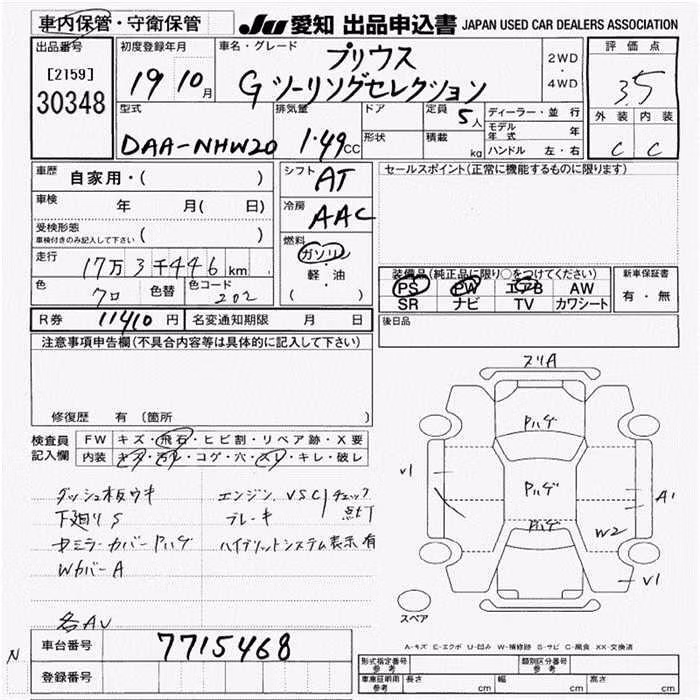 車内保管・守衛保管
JU 愛知 出品申込書 JAPAN USED CAR DEALERS ASSOCIATION
出品番号 初度登録年月 車名・グレード 評価点
[2159] 19 10月 プリウス 2WD・4WD 3.5
30348 G ツーリングセレクション
型式 排気量 ドア 定員 5人 ディーラー・並行 外装 内装
DAA-NHW20 1.49CC 形状 積載 kg モデル年式 年 C C
ハンドル 左・右
車歴 自家用・( ) シフト AT セールスポイント(正常に機能するものに限ります)
車検 年 月( 日) 冷房 AAC
受検形態
車検付きのみ記入して下さい
燃料
走行 17万3千446km ガソリン
軽・油
( )
装備品(純正品に限り○をつけてください) 新車保証書
PS PW エアB AW 有・無
SR ナビ TV カワシート
色 クロ 色替 色コード 202
R券 11410円 名変通知期限 月 日 後日品
注意事項申告欄(不具合内容等は具体的に記入して下さい)
修復歴 有 (箇所 )
検査員記入欄 FW キズ・飛石・ヒビ割・リペア跡・X要
内装 キズ・汚レ・コゲ・穴・スレ・キレ・破レ
ダッシュ板ウキ エンジン、VSC チェック
下廻りS ブレーキ 点灯
ミラーカバーPハゲ ハイブリットシステム表示有
WカバーA
各AU
Pハゲ
Pハゲ
Pハゲ
V1
A1
W2
V1
スペア
A-キズ E-エクボ U-凹み W-補修跡 S-サビ C-腐食 XX-交換済
N 車台番号 7715468
登録番号
型式指定番号 参考 類別区分番号 参考
車庫証明用 参考 長さ cm 幅 cm 高さ cm